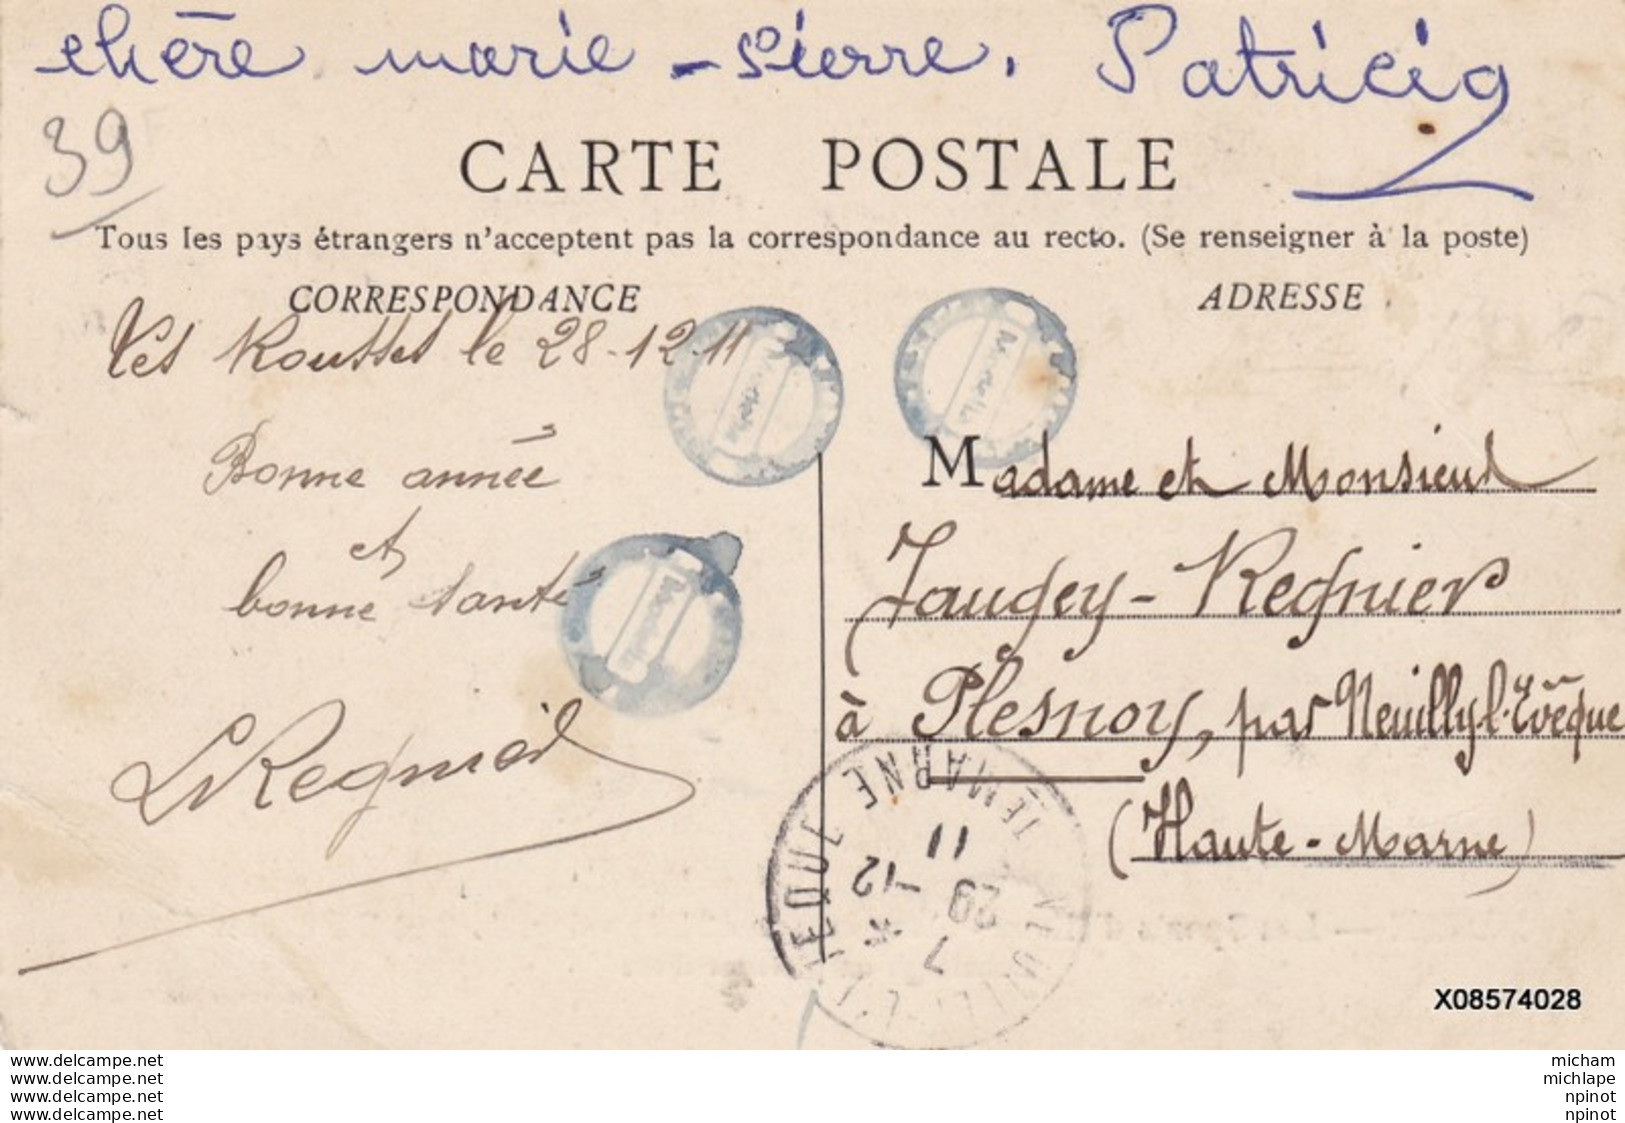 chère marie-Pierre. Patricia
39
CARTE POSTALE
Tous les pays étrangers n'acceptent pas la correspondance au recto. (Se renseigner à la poste)
CORRESPONDANCE
ADRESSE
Les Rousses le 28-12-11
Bonne année
et
bonne santé
L Regnier
Madame et Monsieur
Jaugey-Regnier
à Plesnoy, par Neuilly-l'Evêque
(Haute-Marne)
NEUILLY-L'EVEQUE
HTE MARNE
7 *
29 -12
11
X08574028
www.delcampe.net
www.delcampe.net
www.delcampe.net
www.delcampe.net
micham
michlape
npinot
npinot